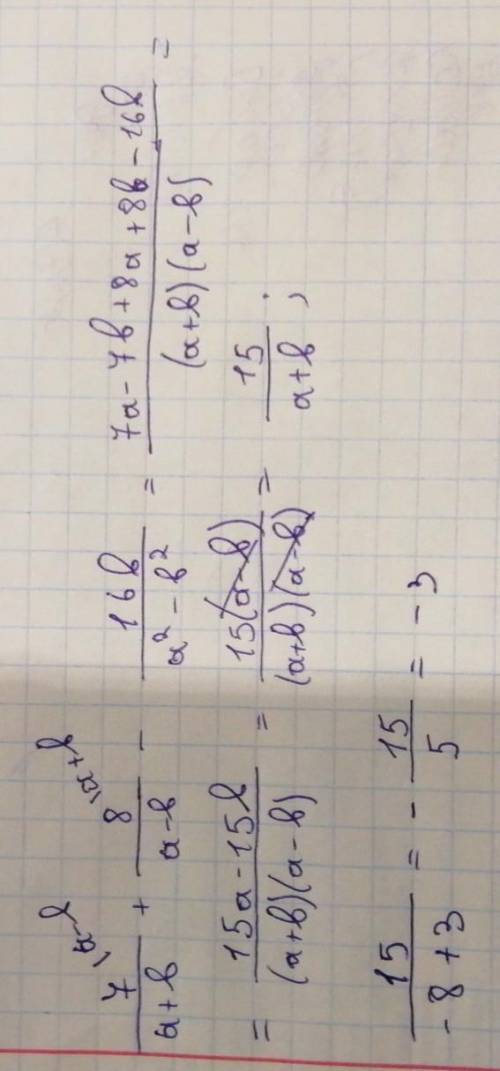 7\a-b / a+b + 8\a+b / a-b - 16b / a² - b² = 7a - 7b + 8a + 8b - 16b / (a+b)(a-b) =
= 15a - 15b / (a+b)(a-b) = 15(a-b) / (a+b)(a-b) = 15 / a+b ;
15 / -8+3 = - 15 / 5 = -3